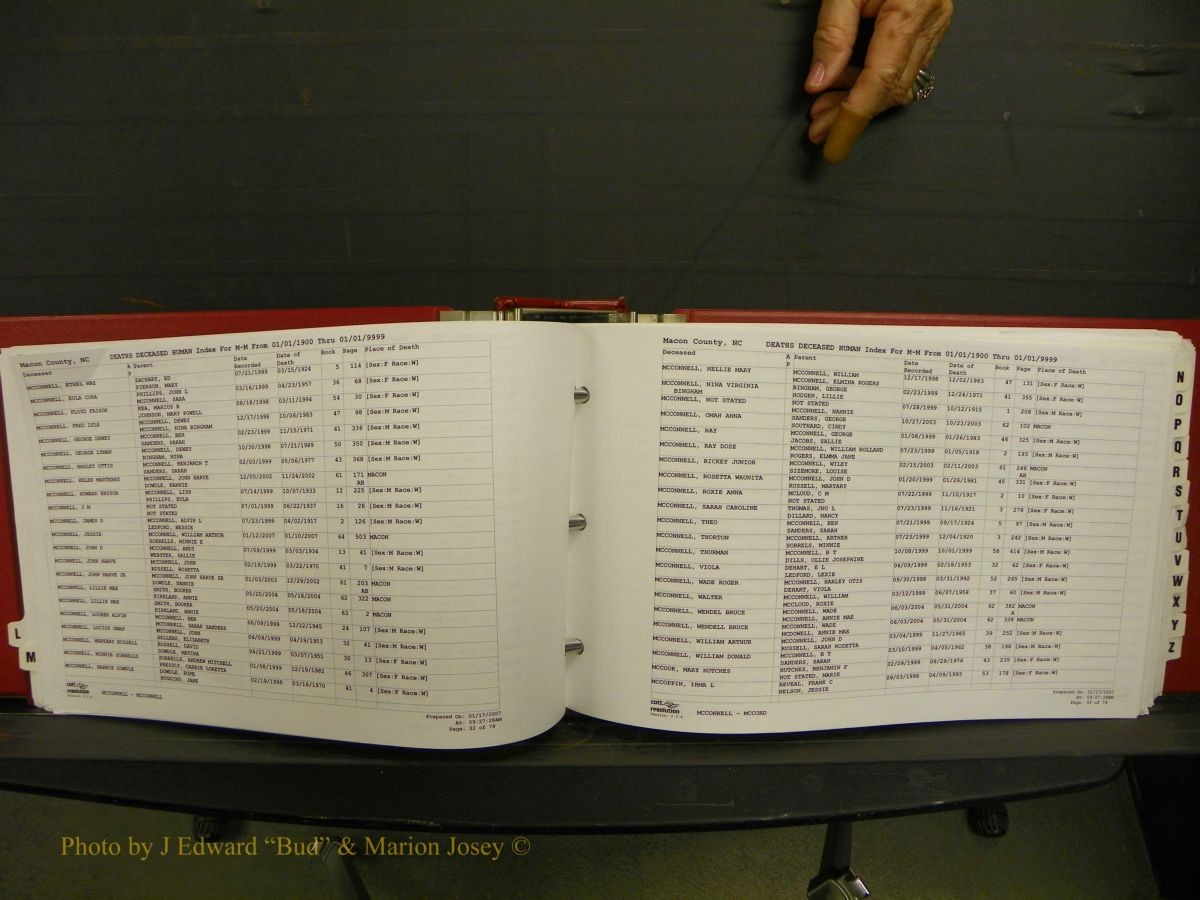 Macon County, NC DEATHS DECEASED HUMAN Index For M-M From 01/01/1900 Thru 01/01/9999
Deceased A Parent Date Recorded Date of Death Book Page Place of Death
P
MCCONNELL, ETHEL MAE ZACHARY, ED 07/21/1999 03/15/1924 5 114 [Sex:F Race:W]
PIERSON, MARY
MCCONNELL, EULA CORA PHILLIPS, JOHN L 03/16/1999 04/23/1957 36 68 [Sex:F Race:W]
MCCONNELL, SARA
MCCONNELL, FLOYD REA, MARIUS B 08/18/1998 03/11/1994 54 30 [Sex:F Race:W]
JOHNSON, MARY POWELL
MCCONNELL, FRED LYLE MCCONNELL, DEWEY 12/17/1998 10/06/1983 47 98 [Sex:M Race:W]
MCCONNELL, NINA BINGHAM
MCCONNELL, GEORGE DEWEY MCCONNELL, BEN 02/23/1999 11/15/1971 41 336 [Sex:M Race:W]
SANDERS, SARAH
MCCONNELL, GEORGE MCCONNELL, DEWEY 10/30/1998 07/21/1989 50 350 [Sex:M Race:W]
BINGHAM, NINA
MCCONNELL, HARLEY OTTIS MCCONNELL, BENJAMIN T 02/03/1999 05/06/1977 43 368 [Sex:M Race:W]
SANDERS, SARAH
MCCONNELL, HELEN MCCONNELL, JOHN HARVE 12/05/2002 11/24/2002 61 171 MACON
DOWDLE, NANNIE AB
MCCONNELL, HOWARD MCCONNELL, LISH 07/14/1999 10/07/1933 12 225 [Sex:M Race:W]
PHILLIPS, EULA
MCCONNELL, J M NOT STATED 07/01/1999 06/22/1937 16 28 [Sex:M Race:W]
NOT STATED
MCCONNELL, JAMES D MCCONNELL, ALVIN L 07/23/1999 04/02/1917 2 126 [Sex:M Race:W]
LEDFORD, BESSIE
MCCONNELL, JESSIE MCCONNELL, WILLIAM ARTHUR 01/12/2007 01/10/2007 64 503 MACON
SORRELLS, MINNIE E
MCCONNELL, JOHN D MCCONNELL, ANDY 07/09/1999 03/03/1934 13 41 [Sex:M Race:W]
WEBSTER, SALLIE
MCCONNELL, JOHN HARVE MCCONNELL, JOHN 02/19/1999 03/22/1970 41 7 [Sex:M Race:W]
RUSSELL, ROSETTA
MCCONNELL, JOHN HARVE JR MCCONNELL, JOHN HARVE SR 01/03/2003 12/29/2002 61 203 MACON
DOWDLE, NANNIE AB
MCCONNELL, LILLIE MAE SMITH, BOOKER 05/20/2004 05/18/2004 62 322 MACON
KIRKLAND, ANNIE
MCCONNELL, LILLIE MAE SMITH, BOOKER 05/20/2004 05/18/2004 63 2 MACON
KIRKLAND, ANNIE
MCCONNELL, LOUREN ALVIN MCCONNELL, BEN 06/09/1999 12/12/1945 24 107 [Sex:M Race:W]
MCCONNELL, SARAH SANDERS
MCCONNELL, LUCIUS MCCONNELL, JOHN 04/09/1999 04/19/1953 32 41 [Sex:M Race:W]
SELLERS, ELIZABETH
MCCONNELL, MARTARY RUSSELL RUSSELL, DAVID 04/21/1999 03/07/1951 30 13 [Sex:F Race:W]
DOWDLE,
MCCONNELL, MINNIE SORRELLS SORRELLS, ANDREW MITCHELL 01/08/1999 12/19/1982 46 307 [Sex:F Race:W]
PRESSLY, CARRIE LORETTA
MCCONNELL, NANNIE DOWDLE DOWDLE, POPE 02/19/1999 03/16/1970 41 4 [Sex:F Race:W]
HUGGINS, JANE
cott resolution
MCCONNELL - MCCONNELL
Prepared On: 01/17/2007
At: 09:27:28AM
Page: 32 of 79
L
M
Macon County, NC DEATHS DECEASED HUMAN Index For M-M From 01/01/1900 Thru 01/01/9999
Deceased A Parent Date Recorded Date of Death Book Page Place of Death
P
MCCONNELL, NELLIE MARY MCCONNELL, WILLIAM 12/17/1998 12/02/1983 47 131 [Sex:F Race:W]
MCCONNELL, ELMINA ROGERS
MCCONNELL, NINA VIRGINIA BINGHAM, GEORGE 02/23/1999 12/24/1971 41 355 [Sex:F Race:W]
BINGHAM HODGEN, LILLIE
MCCONNELL, NOT STATED NOT STATED 07/28/1999 10/12/1915 1 208 [Sex:M Race:W]
MCCONNELL, NANNIE
MCCONNELL, OMAH ANNA SANDERS, GEORGE 10/27/2003 10/23/2003 62 102 MACON
SOUTHARD, CINDY
MCCONNELL, RAY MCCONNELL, GEORGE 01/08/1999 01/26/1983 46 325 [Sex:M Race:W]
JACOBS, SALLIE
MCCONNELL, RAY DOZE MCCONNELL, WILLIAM ROLLAND 07/23/1999 01/05/1918 2 193 [Sex:M Race:W]
ROGERS, EMMA JANE
MCCONNELL, RICKEY JUNIOR MCCONNELL, WILEY 02/15/2003 02/11/2003 61 246 MACON
SIZEMORE, LOUISE AB
MCCONNELL, ROSETTA WAUNITA MCCONNELL, JOHN D 01/20/1999 01/26/1981 45 331 [Sex:F Race:W]
RUSSELL, MARTARY
MCCONNELL, ROXIE ANNA MCLOUD, C M 07/22/1999 11/10/1917 2 10 [Sex:F Race:W]
NOT STATED
MCCONNELL, SARAH CAROLINE THOMAS, JNO L 07/23/1999 11/16/1921 3 276 [Sex:F Race:W]
DILLARD, NANCY
MCCONNELL, THEO MCCONNELL, BEN 07/21/1999 09/17/1924 5 97 [Sex:M Race:W]
SANDERS, SARAH
MCCONNELL, THORTON MCCONNELL, ARTHER 07/23/1999 12/04/1920 3 242 [Sex:M Race:W]
SORRELS, MINNIE
MCCONNELL, THURMAN MCCONNELL, B T 10/08/1999 10/01/1999 58 414 [Sex:M Race:W]
DILLS, OLLIE JOSEPHINE
MCCONNELL, VIOLA DEHART, E L 04/09/1999 02/18/1953 32 42 [Sex:F Race:W]
LEDFORD, LEXIE
MCCONNELL, WADE ROGER MCCONNELL, HARLEY OTIS 09/30/1998 03/31/1992 52 265 [Sex:M Race:W]
DEHART, VIOLA
MCCONNELL, WALTER MCCONNELL, WILLIAM 03/12/1999 06/07/1958 37 60 [Sex:M Race:W]
MCCLOUD, ROXIE
MCCONNELL, WENDEL BRUCE MCCONNELL, WADE 06/03/2004 05/31/2004 62 382 MACON
MCCONNELL, ANNIE MAE A
MCCONNELL, WENDELL BRUCE MCCONNELL, WADE 06/03/2004 05/31/2004 62 338 MACON
MCDOWELL, ANNIE MAE
MCCONNELL, WILLIAM ARTHUR MCCONNELL, JOHN D 03/04/1999 11/27/1965 39 252 [Sex:M Race:W]
RUSSELL, SARAH ROSETTA
MCCONNELL, WILLIAM DONALD MCCONNELL, B T 03/10/1999 04/05/1962 38 198 [Sex:M Race:W]
SANDERS, SARAH
MCCOOK, MARY HUTCHES HUTCHES, BENJAMIN F 02/09/1999 06/29/1976 43 235 [Sex:F Race:W]
NOT STATED, MARIE
MCCOPPIN, IRMA L REVEAL, FRANK C 09/03/1998 04/09/1993 53 178 [Sex:F Race:W]
NELSON, JESSIE
cott resolution
MCCONNELL - MCCORD
Prepared On: 01/17/2007
At: 09:27:28AM
Page: 33 of 79
N
O
P
Q
R
S
T
U
V
W
X
Y
Z
Photo by J Edward “Bud” & Marion Josey ©